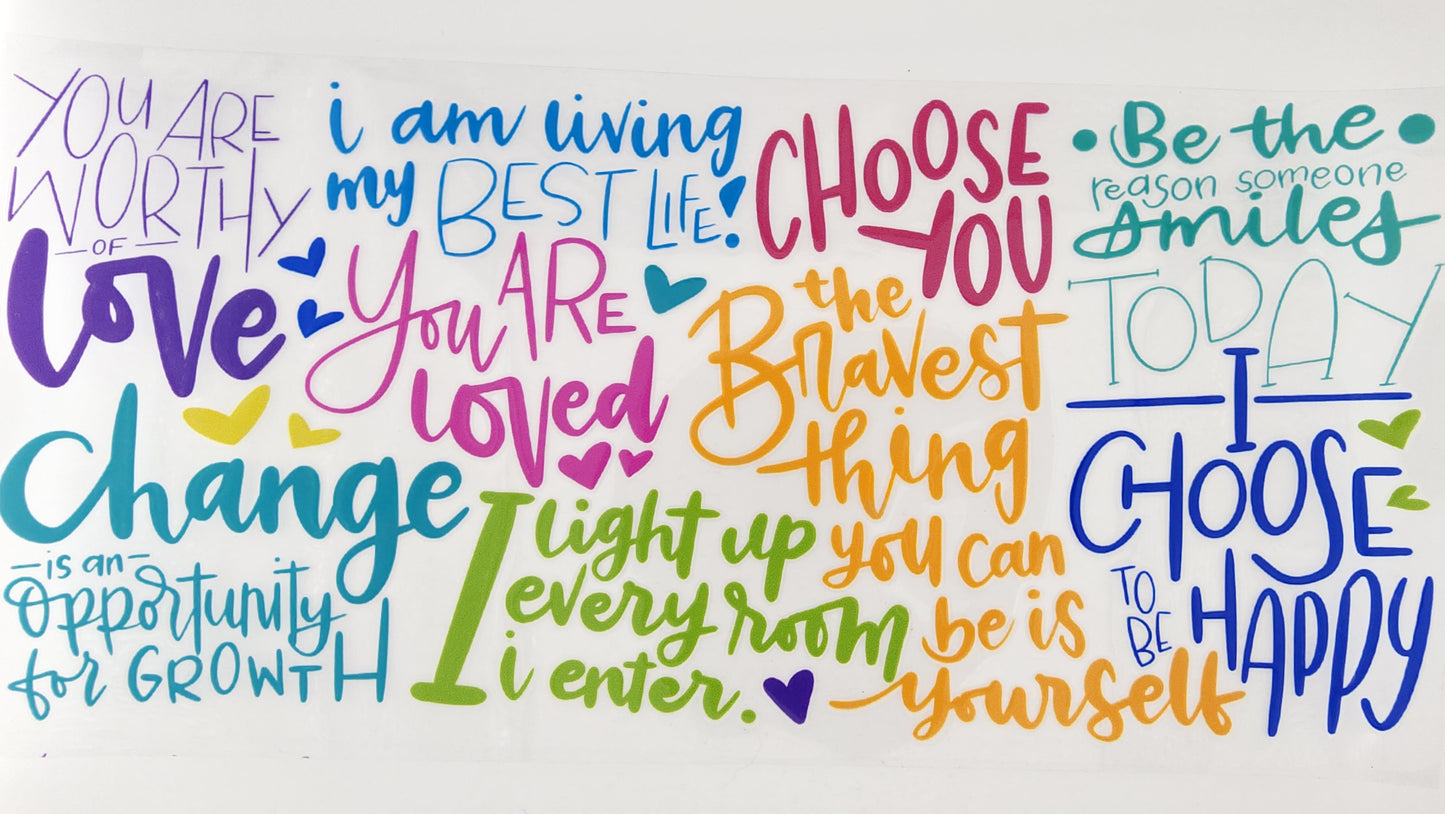 YOU ARE
WORTHY
- OF -
Love
i am living
my BEST LIFE!
CHOOSE
YOU
• Be the •
reason someone
smiles
TODAY
You ARE
loved
the
Bravest
thing
you can
be is
yourself
Change
- is an -
opportunity
for GROWTH
I light up
every room
i enter.
I
CHOOSE
TO BE
HAPPY